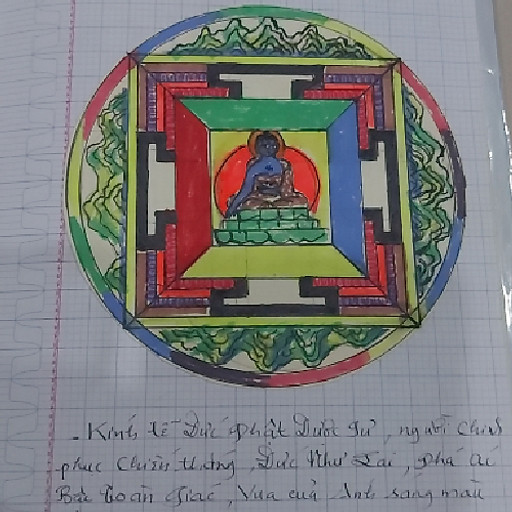 . Kính lễ Đức Phật Dược Sư, người chinh
phục chiến thắng, Đức Như Lai, phá ác
Bậc toàn giác, Vua của Ánh sáng màu